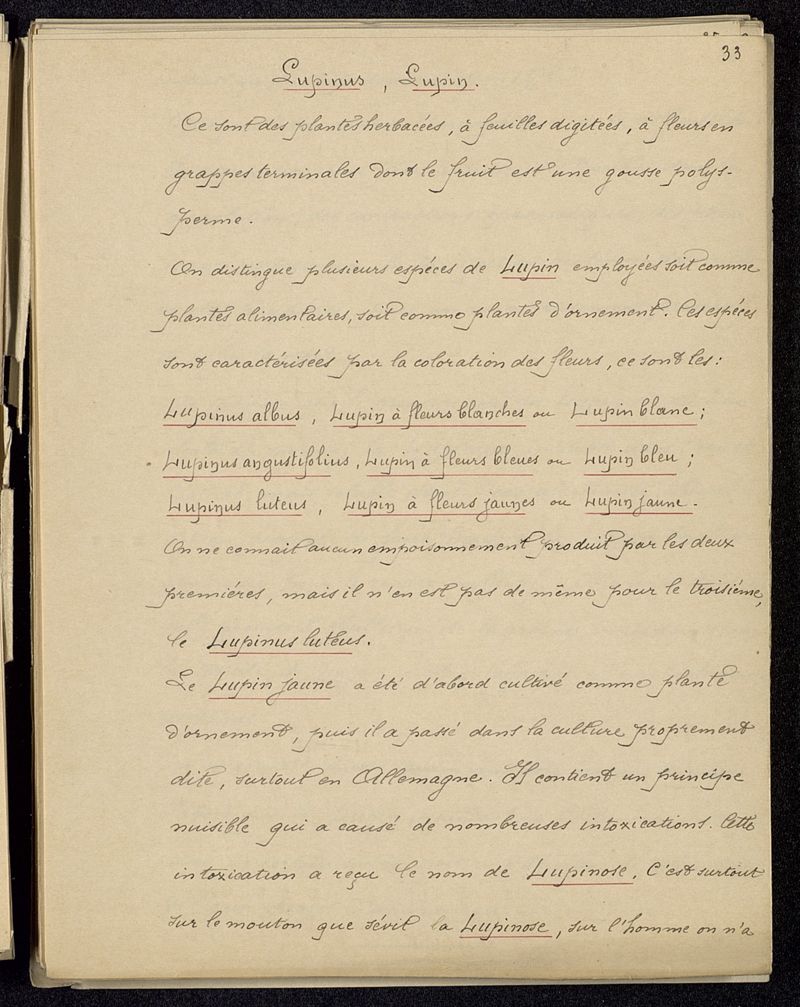 33
Lupinus, Lupin.
Ce sont des plantes herbacées, à feuilles digitées, à fleurs en
grappes terminales dont le fruit est une gousse polys-
perme.
On distingue plusieurs espéces de Lupin employées soit comme
plantes alimentaires, soit comme plantes d'ornement. Ces espéces
sont caractérisées par la coloration des fleurs, ce sont les:
Lupinus albus, Lupin à fleurs blanches ou Lupin blanc;
Lupinus angustifolius, Lupin à fleurs bleues ou Lupin bleu;
Lupinus luteus, Lupin à fleurs jaunes ou Lupin jaune.
On ne connait aucun empoisonnement produit par les deux
premiéres, mais il n'en est pas de même pour le troisiéme,
le Lupinus luteus.
Le Lupin jaune a été d'abord cultivé comme plante
d'ornement, puis il a passé dans la culture proprement
dite, surtout en Allemagne. Il contient un principe
nuisible qui a causé de nombreuses intoxications. Cette
intoxication a reçu le nom de Lupinose. C'est surtout
sur le mouton que sévit la Lupinose, sur l'homme on n'a